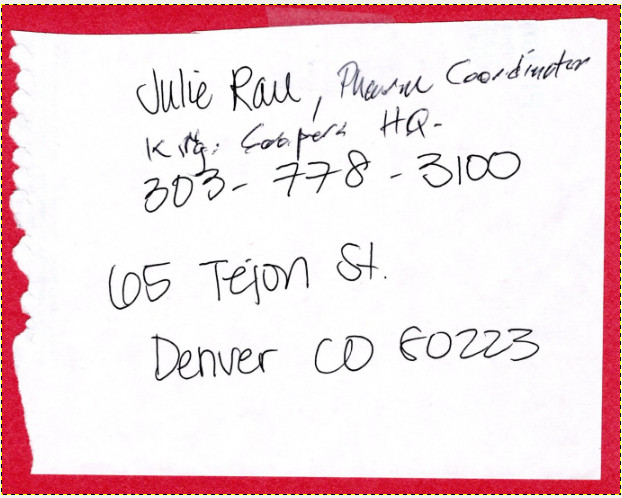 Julie Rau, Pharm Coordinator
King. Soopers HQ-
303-778-3100
65 Tejon St.
Denver CO 80223